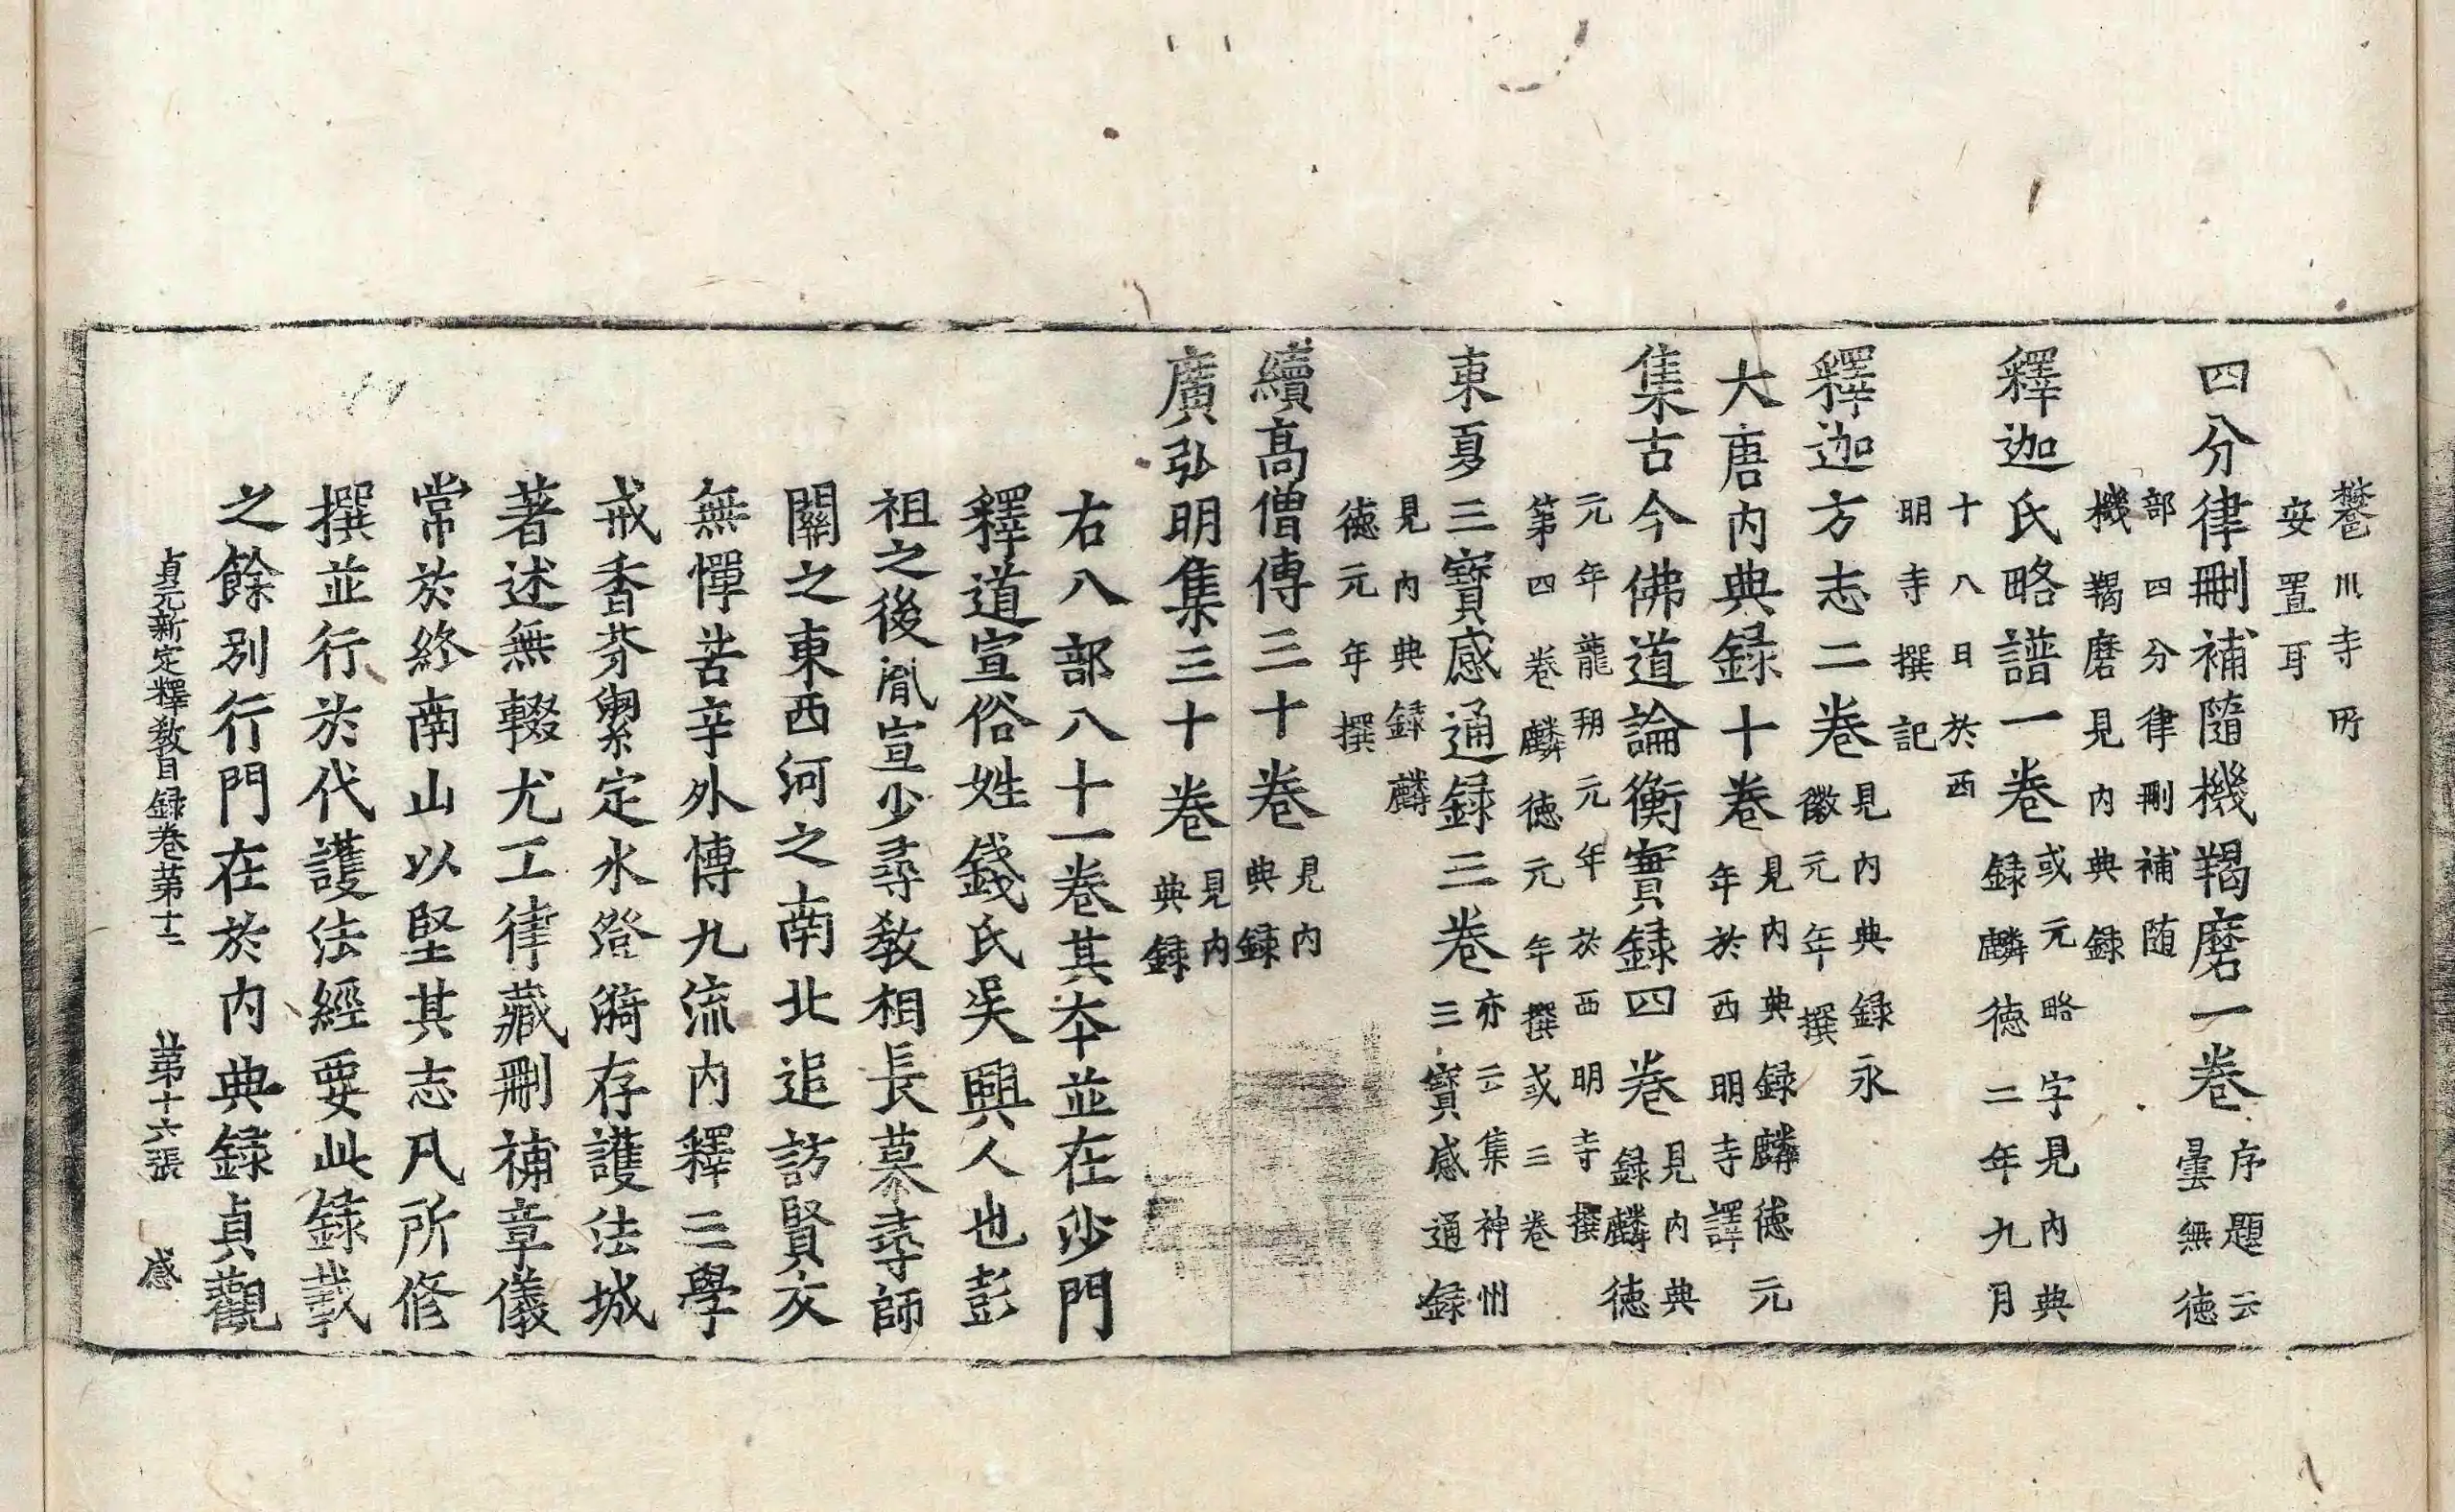 樊川寺所
安置耳
四分律刪補隨機羯磨一卷序題云曇無德
部四分律刪補随機羯磨見內典録
釋迦氏略譜一卷或元略字見內典録麟德二年九月
十八日於西明寺撰記
釋迦方志二卷見內典録永徽元年撰
大唐內典録十卷見內典録麟德元年於西明寺譯
集古今佛道論衡實録四卷見內典録麟德
元年龍朔元年於西明寺撰第四卷麟德元年撰或三卷
東夏三寶感通録三卷亦云集神州三寶感通録
見內典録麟德元年撰
續高僧傳三十卷見內典録
廣弘明集三十卷見內典録
右八部八十一卷其本並在沙門
釋道宣俗姓錢氏吳興人也彭
祖之後胤宣少尋教相長慕尋師
關之東西河之南北追訪賢友
無憚苦辛外博九流內釋三學
戒香芬馥定水澄漪存護法城
著述無輟尤工律藏刪補章儀
常於終南山以堅其志凡所修
撰並行於代護法經要此録載
之餘別行門在於內典録貞觀
貞元新定釋教目録卷第十二 第十六張 感